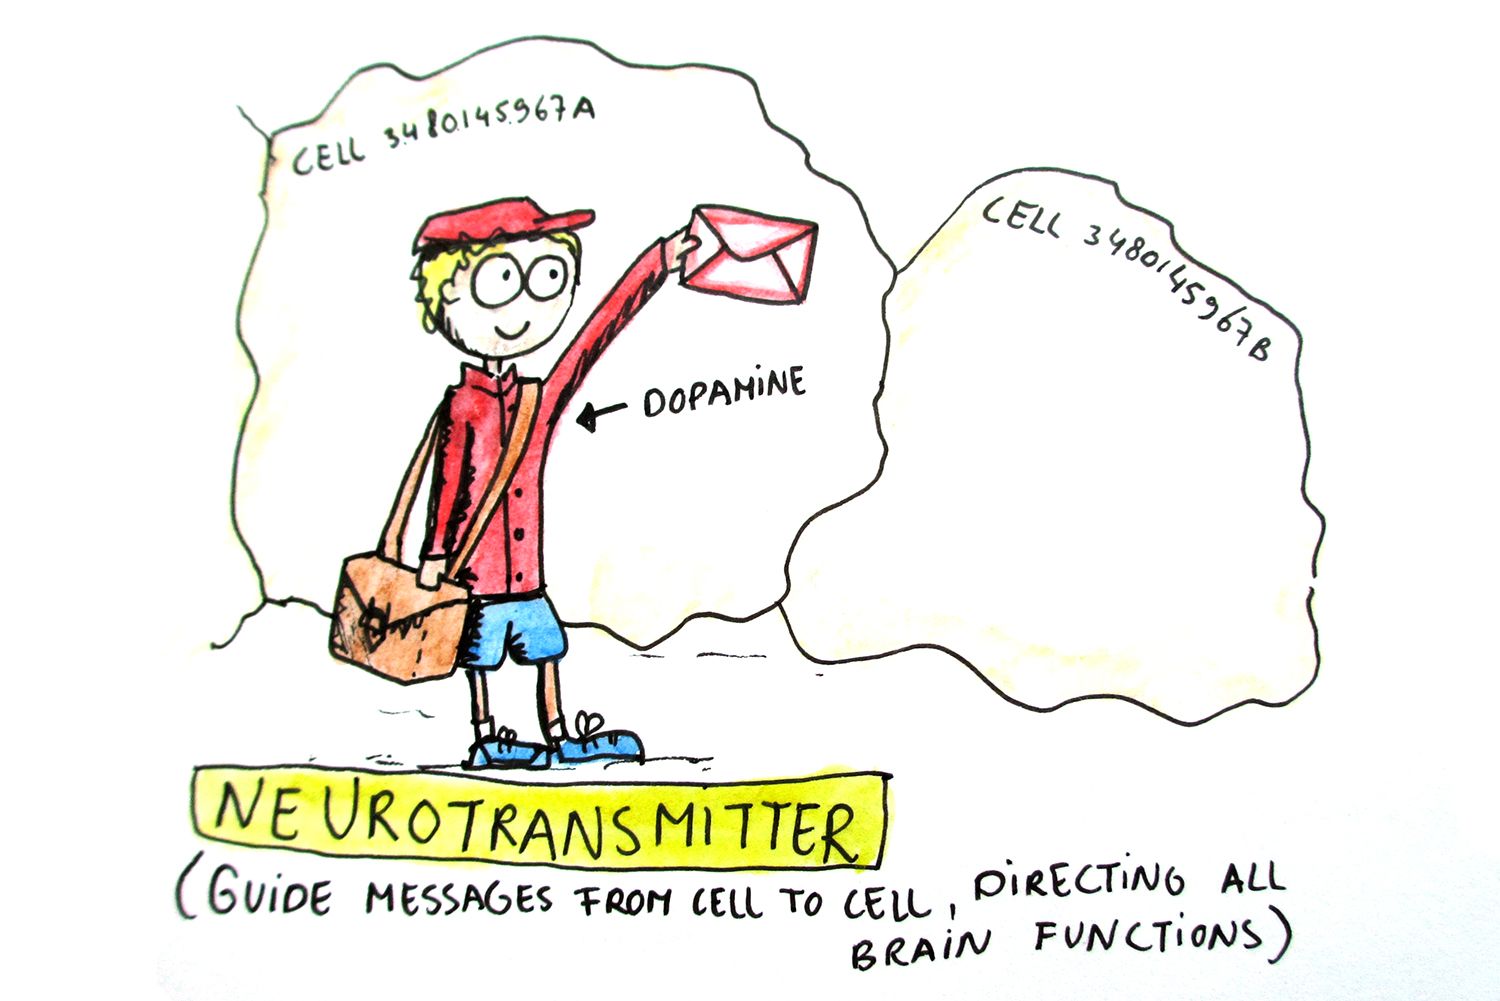 CELL 3.480.145.967A
CELL 3480145967B
← DOPAMINE
NEUROTRANSMITTER
(GUIDE MESSAGES FROM CELL TO CELL, DIRECTING ALL
BRAIN FUNCTIONS)